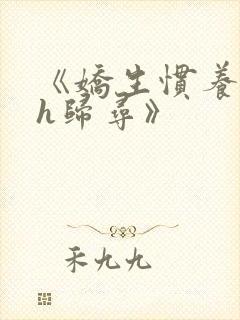 《嬌生慣養
h歸尋》
禾九九